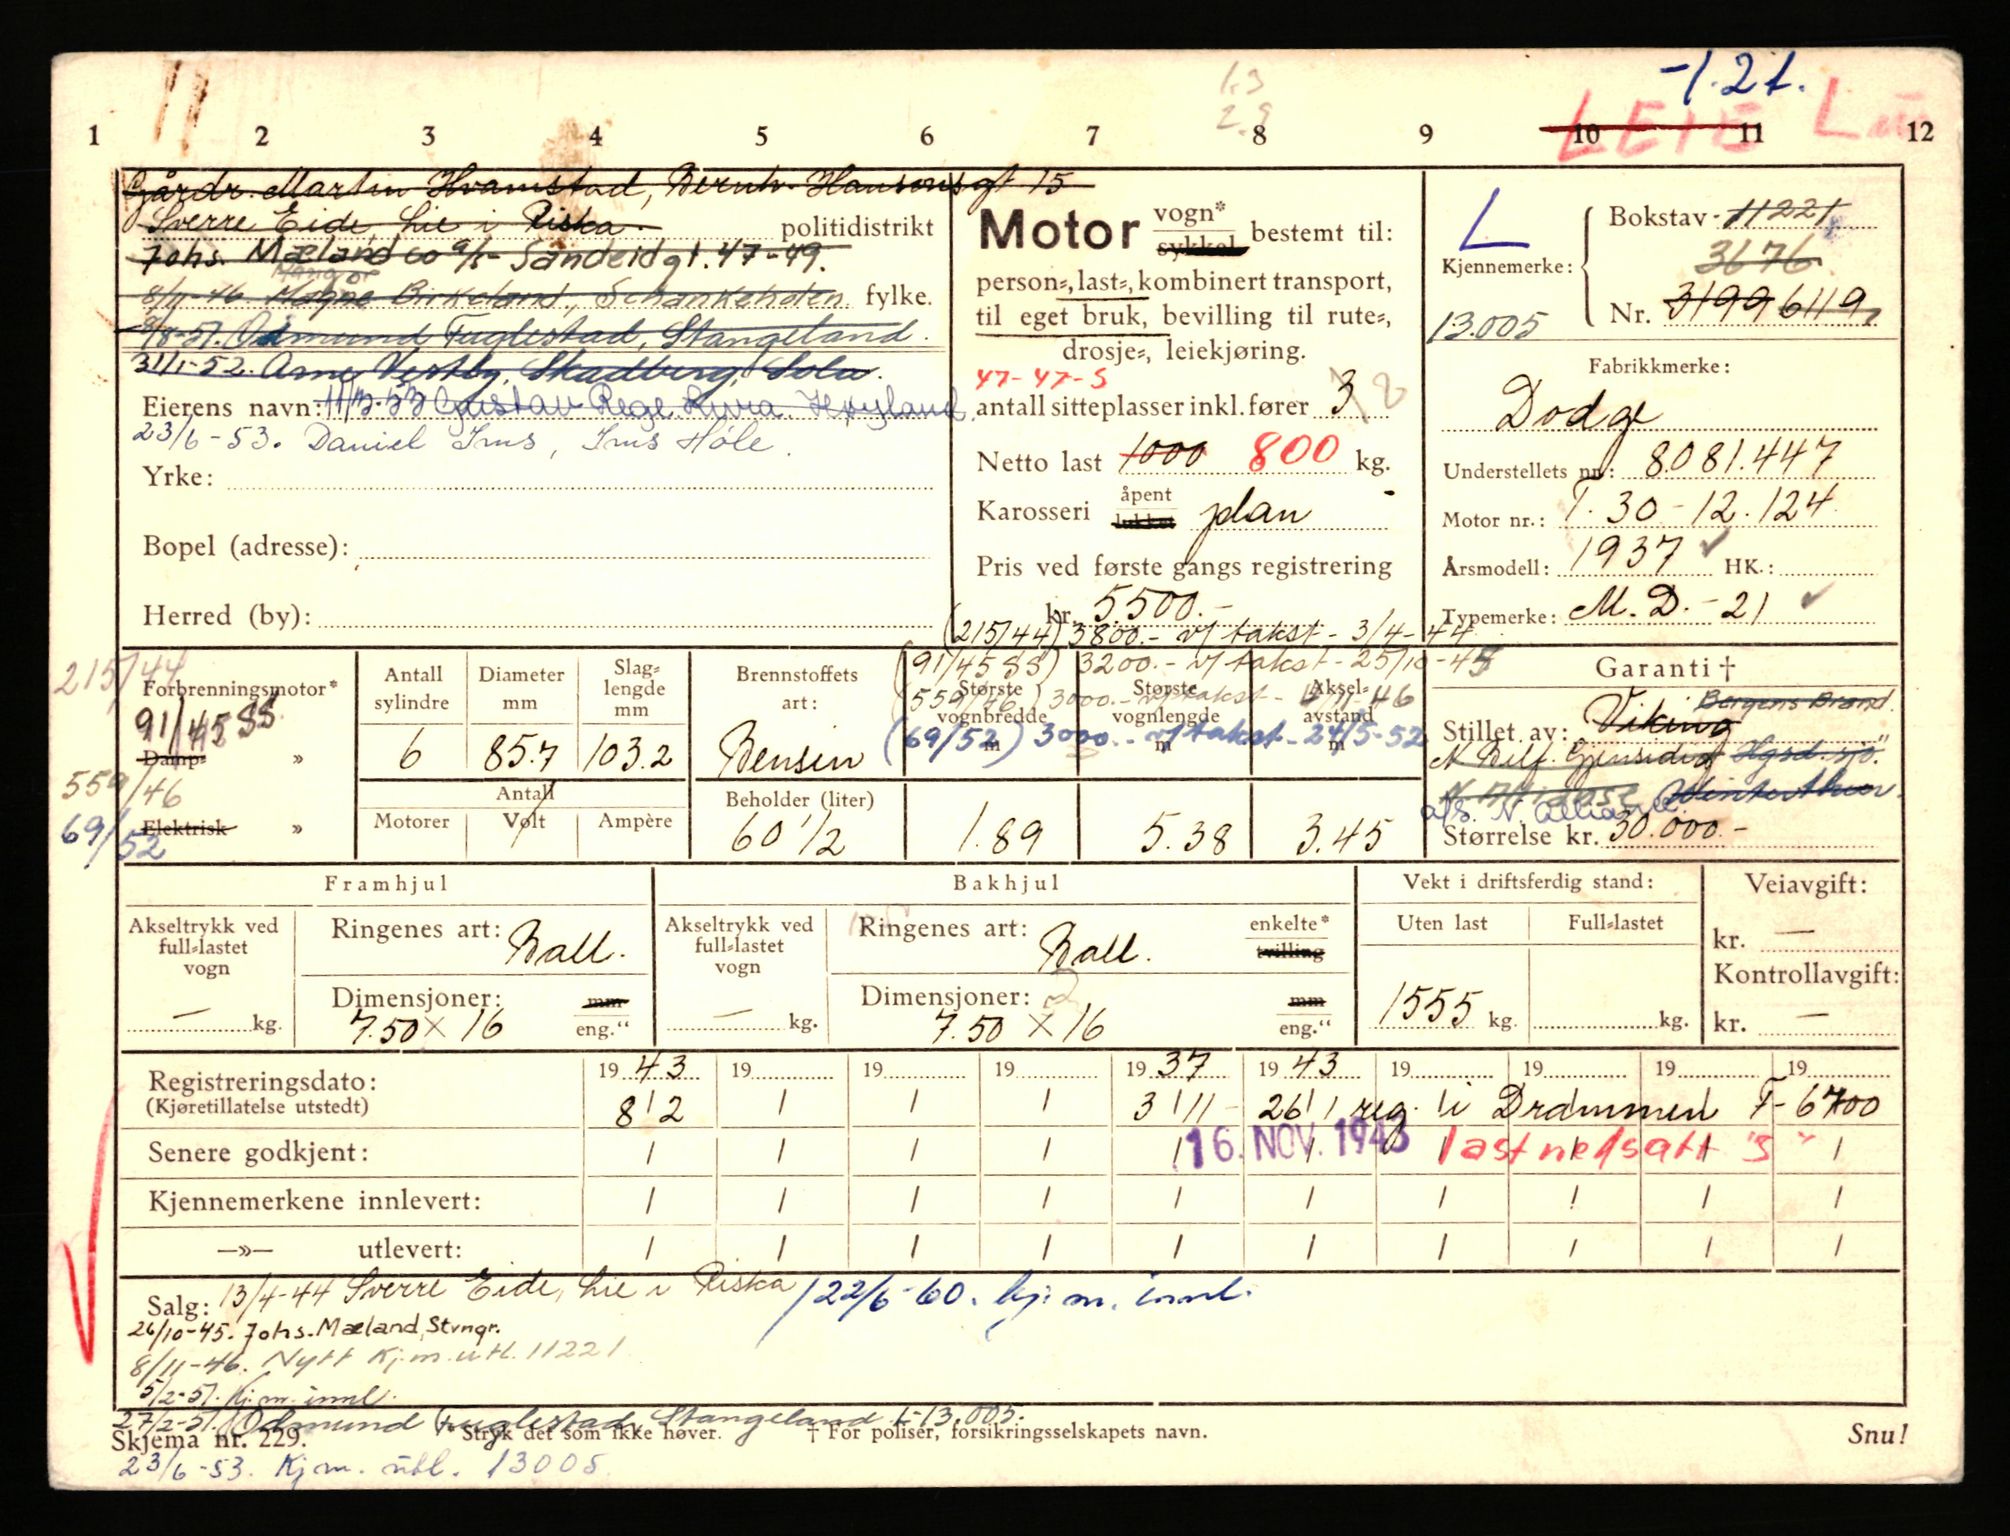 -1.2t.
1.3
2.9
LEIE L
1 2 3 4 5 6 7 8 9 10 11 12
Gårdr. Martin Hvamstad, Bernh. Hansensgt 15
Sverre Eide, Lie i Riska. politidistrikt
Johs. Mæland co a/s - Sandeidgt. 47-49.
8/11-46. Magne Birkeland, Schankeholen fylke.
9/8-51. Odmund Fuglestad, Stangeland.
31/1-52. Arne Vestby, Skadberg, Sola.
Eierens navn: 11/3-53 Gustav Rege Kvia Høyland
23/6-53. Daniel Ims, Ims Høle.
Yrke:
Bopel (adresse):
Herred (by):
Motor vogn* sykkel bestemt til:
person-, last-, kombinert transport,
til eget bruk, bevilling til rute-,
drosje-, leiekjøring.
47-47-S
antall sitteplasser inkl. fører 3
Netto last 1000 800 kg.
Karosseri åpent lukket plan
Pris ved første gangs registrering
kr. 5500.-
(215/44) 3800.- v/ takst - 3/4-44
(91/45 SS) 3200.- v/ takst - 25/10-45
559/46) 3000.- v/ takst - 4/11-46
(69/52) 3000.- v/ takst - 24/5-52
L
Kjennemerke: Bokstav 11221
3676
Nr. 3199 6119
13.005
Fabrikkmerke:
Dodge
Understellets nr.: 8.081.447
Motor nr.: T. 30-12.124
Årsmodell: 1937 HK.:
Typemerke: M.D.-21
215/44
Forbrenningsmotor*
91/45 SS.
Damp- »
559/46
69/52
Elektrisk »
Antall sylindre Diameter mm Slaglengde mm Brennstoffets art: Største vognbredde m Største vognlengde m Akselavstand m
6 85.7 103.2 Bensin
Antall
Motorer Volt Ampère Beholder (liter)
60 1/2 1.89 5.38 3.45
Garanti †
Bergens Brand.
Stillet av: Viking
N. Bilf. Gjensidige Hgsd. sjø.
Winterthur
a/s. N. Alliance
Størrelse kr. 30.000.-
Framhjul Bakhjul Vekt i driftsferdig stand: Veiavgift:
Akseltrykk ved full-lastet vogn Ringenes art: Ball. Akseltrykk ved full-lastet vogn Ringenes art: Ball. enkelte* tvilling Uten last Full-lastet kr. —
Kontrollavgift:
— kg. Dimensjoner: 7.50 x 16 mm eng." — kg. Dimensjoner: 7.50 x 16 mm eng." 1555 kg. kg. kr. —
Registreringsdato: 19 43 19 19 19 19 37 19 43 19 19 19 19
(Kjøretillatelse utstedt) 8/2 / / / 3/11 - 26/1 reg. i Drammen F-6700
Senere godkjent: 16. NOV. 1943 last nedsatt "S"
Kjennemerkene innlevert:
—»— utlevert:
Salg: 13/4-44 Sverre Eide, Lie i Riska /22/6-60. kj.m. innl.
26/10-45. Johs. Mæland, Stvngr.
8/11-46. Nytt Kj.m. utl. 11221
5/2-51. Kj.m. innl.
27/2-51. Odmund Fuglestad, Stangeland L-13.005.
Skjema nr. 229. * Stryk det som ikke høver. † For poliser, forsikringsselskapets navn. Snu!
23/6-53. Kj.m. utl. 13005.